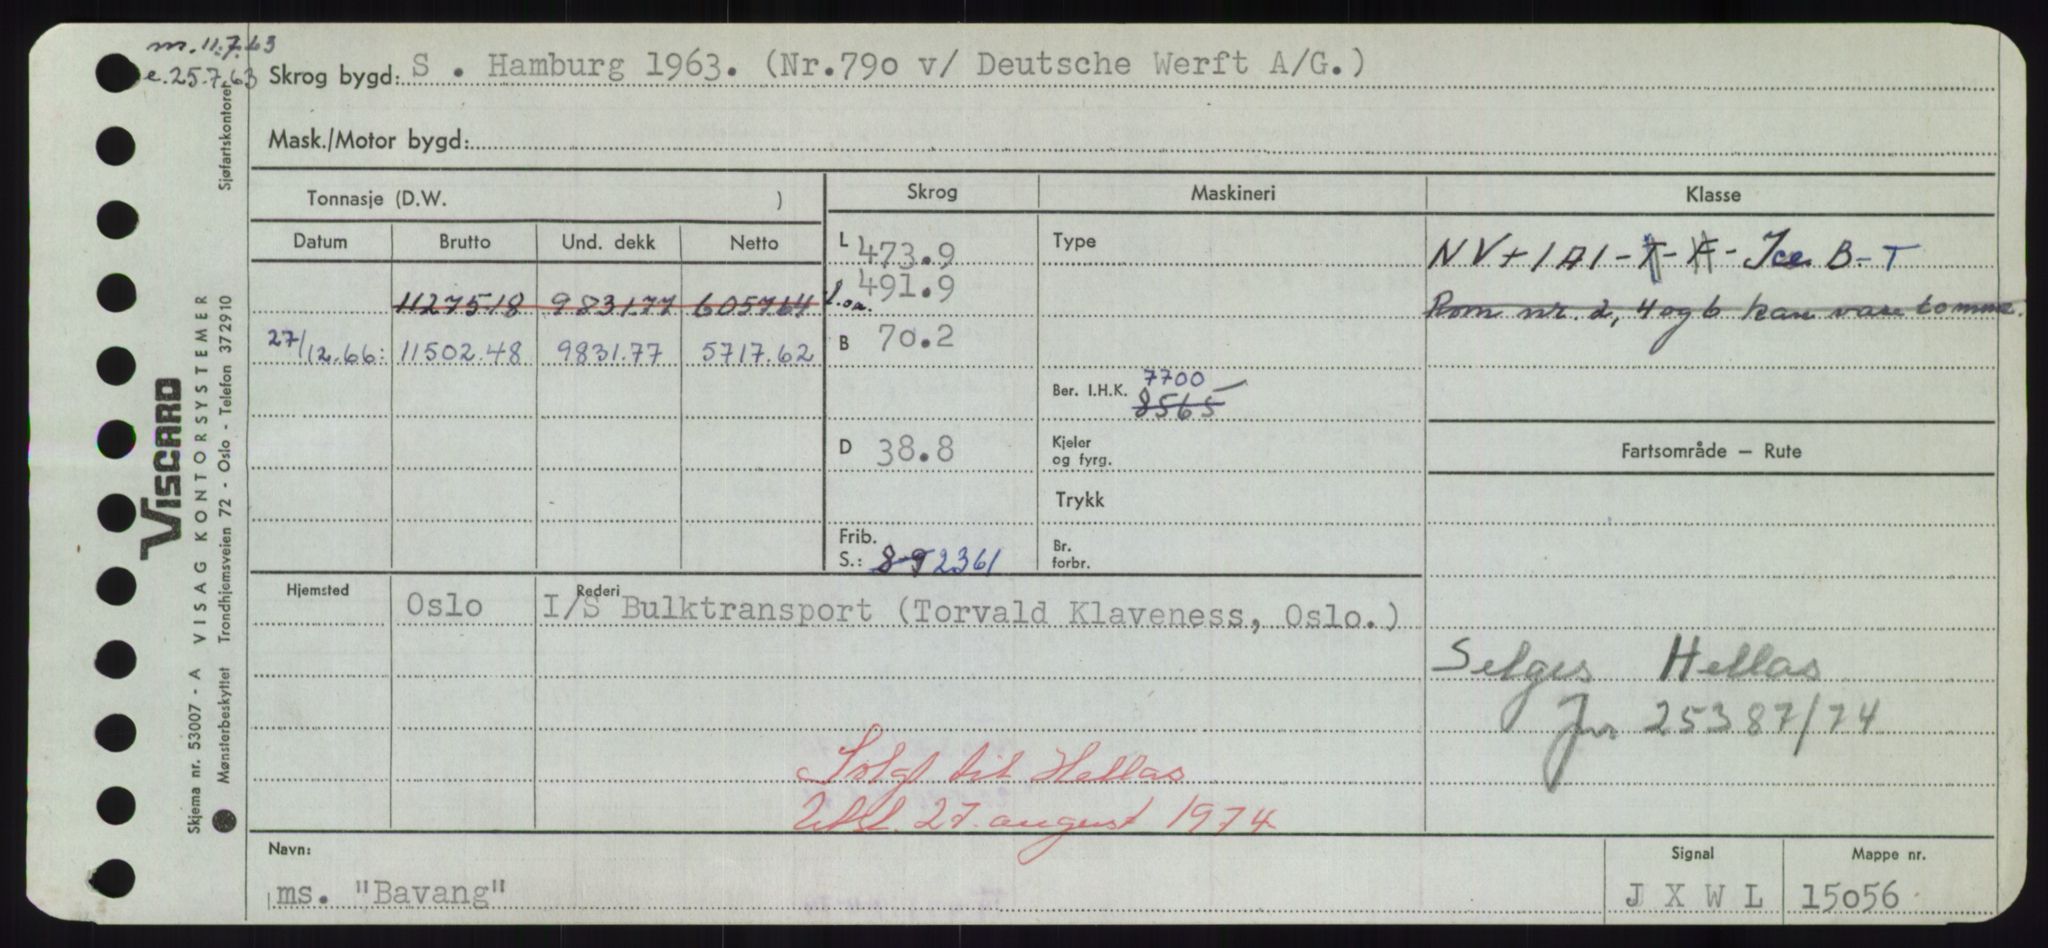 m. 11.7.63
e. 25.7.63
Skrog bygd: S . Hamburg 1963. (Nr.79o v/ Deutsche Werft A/G.)
Mask./Motor bygd:
Tonnasje (D.W. )
Skrog Maskineri Klasse
Datum Brutto Und. dekk Netto
L 473.9
Type
NV+1A1-T-F-Ice B-T
11275.18 9831.77 6057.64
L.oa. 491.9
Rom nr. 2, 4 og 6 kan være tomme.
27/12.66: 11502.48 9831.77 5717.62
B 70.2
Ber. I.H.K. 7700
8565
D 38.8
Kjeler
og fyrg.
Fartsområde – Rute
Trykk
Frib.
S.: 2361
Br.
forbr.
Hjemsted
Oslo
Rederi
I/S Bulktransport (Torvald Klaveness, Oslo.)
Selges Hellas
Jnr 25387/74
Solgt til Hellas
Utsl. 27. august 1974
Navn:
ms. "Bavang"
Signal
J X W L
Mappe nr.
15o56
Sjøfartskontoret
VISCARD
VISAG KONTORSYSTEMER
Trondhjemsveien 72 - Oslo - Telefon 372910
Skjema nr. 53007 - A
Mønsterbeskyttet